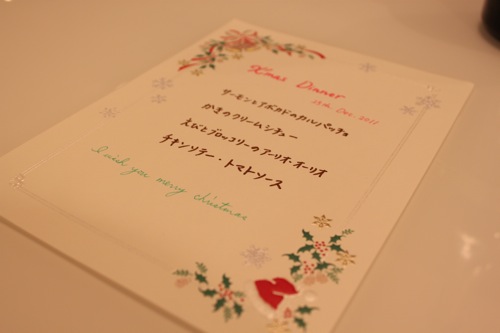 X'mas Dinner
15th Dec. 2011
サーモンとアボカドのカルパッチョ
かきのクリームシチュー
えびとブロッコリーのアーリオ・オーリオ
チキンソテー・トマトソース
I wish you merry christmas